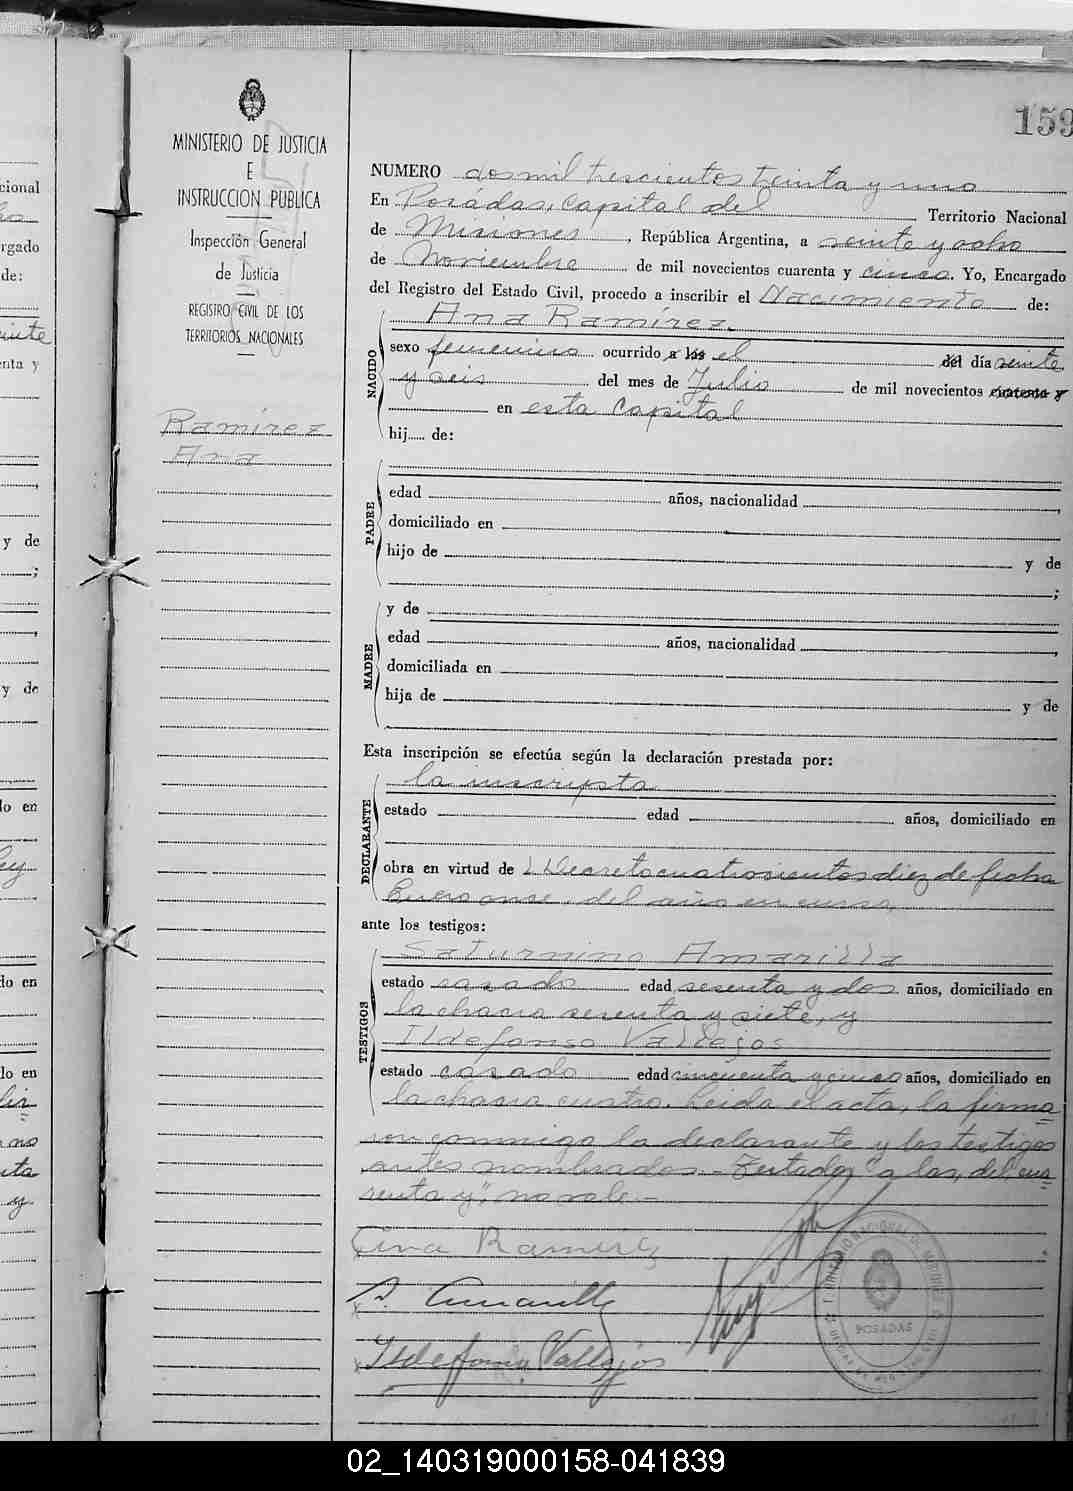 159
MINISTERIO DE JUSTICIA
E
INSTRUCCION PUBLICA
Inspección General
de Justicia
REGISTRO CIVIL DE LOS
TERRITORIOS NACIONALES
Ramírez
Ana
NUMERO dos mil trescientos treinta y uno
En Posádas, Capital del Territorio Nacional
de Misiones, República Argentina, a veinte y ocho
de Noviembre de mil novecientos cuarenta y cinco. Yo, Encargado
del Registro del Estado Civil, procedo a inscribir el Nacimiento de:
NACIDO
Ana Ramírez.
sexo femenino ocurrido a las el del día veinte
y seis del mes de Julio de mil novecientos cuarenta y
en esta Capital
hij de:
PADRE
edad años, nacionalidad
domiciliado en
hijo de y de
;
MADRE
y de
edad años, nacionalidad
domiciliada en
hija de y de
Esta inscripción se efectúa según la declaración prestada por:
DECLARANTE
la inscripta
estado edad años, domiciliado en
obra en virtud de l Decreto cuatrocientos diez de fecha
Enero once, del año en curso,
ante los testigos:
TESTIGOS
Saturnino Amarilla
estado casado edad sesenta y dos años, domiciliado en
la chacra sesenta y siete, y
Ildefonso Vallejos
estado casado edad cincuenta y cinco años, domiciliado en
la chacra cuatro. Leida el acta, la firma=
ron conmigo la declarante y los testigos
antes nombrados. Testado: "a las, del, cua=
renta y", no vale.-
Ana Ramirez
S. Amarilla
Ildefonso Vallejos
POSADAS
cional
rgado
de:
einte
enta y
y de
;
y de
do en
do en
do en
y
02_140319000158-041839